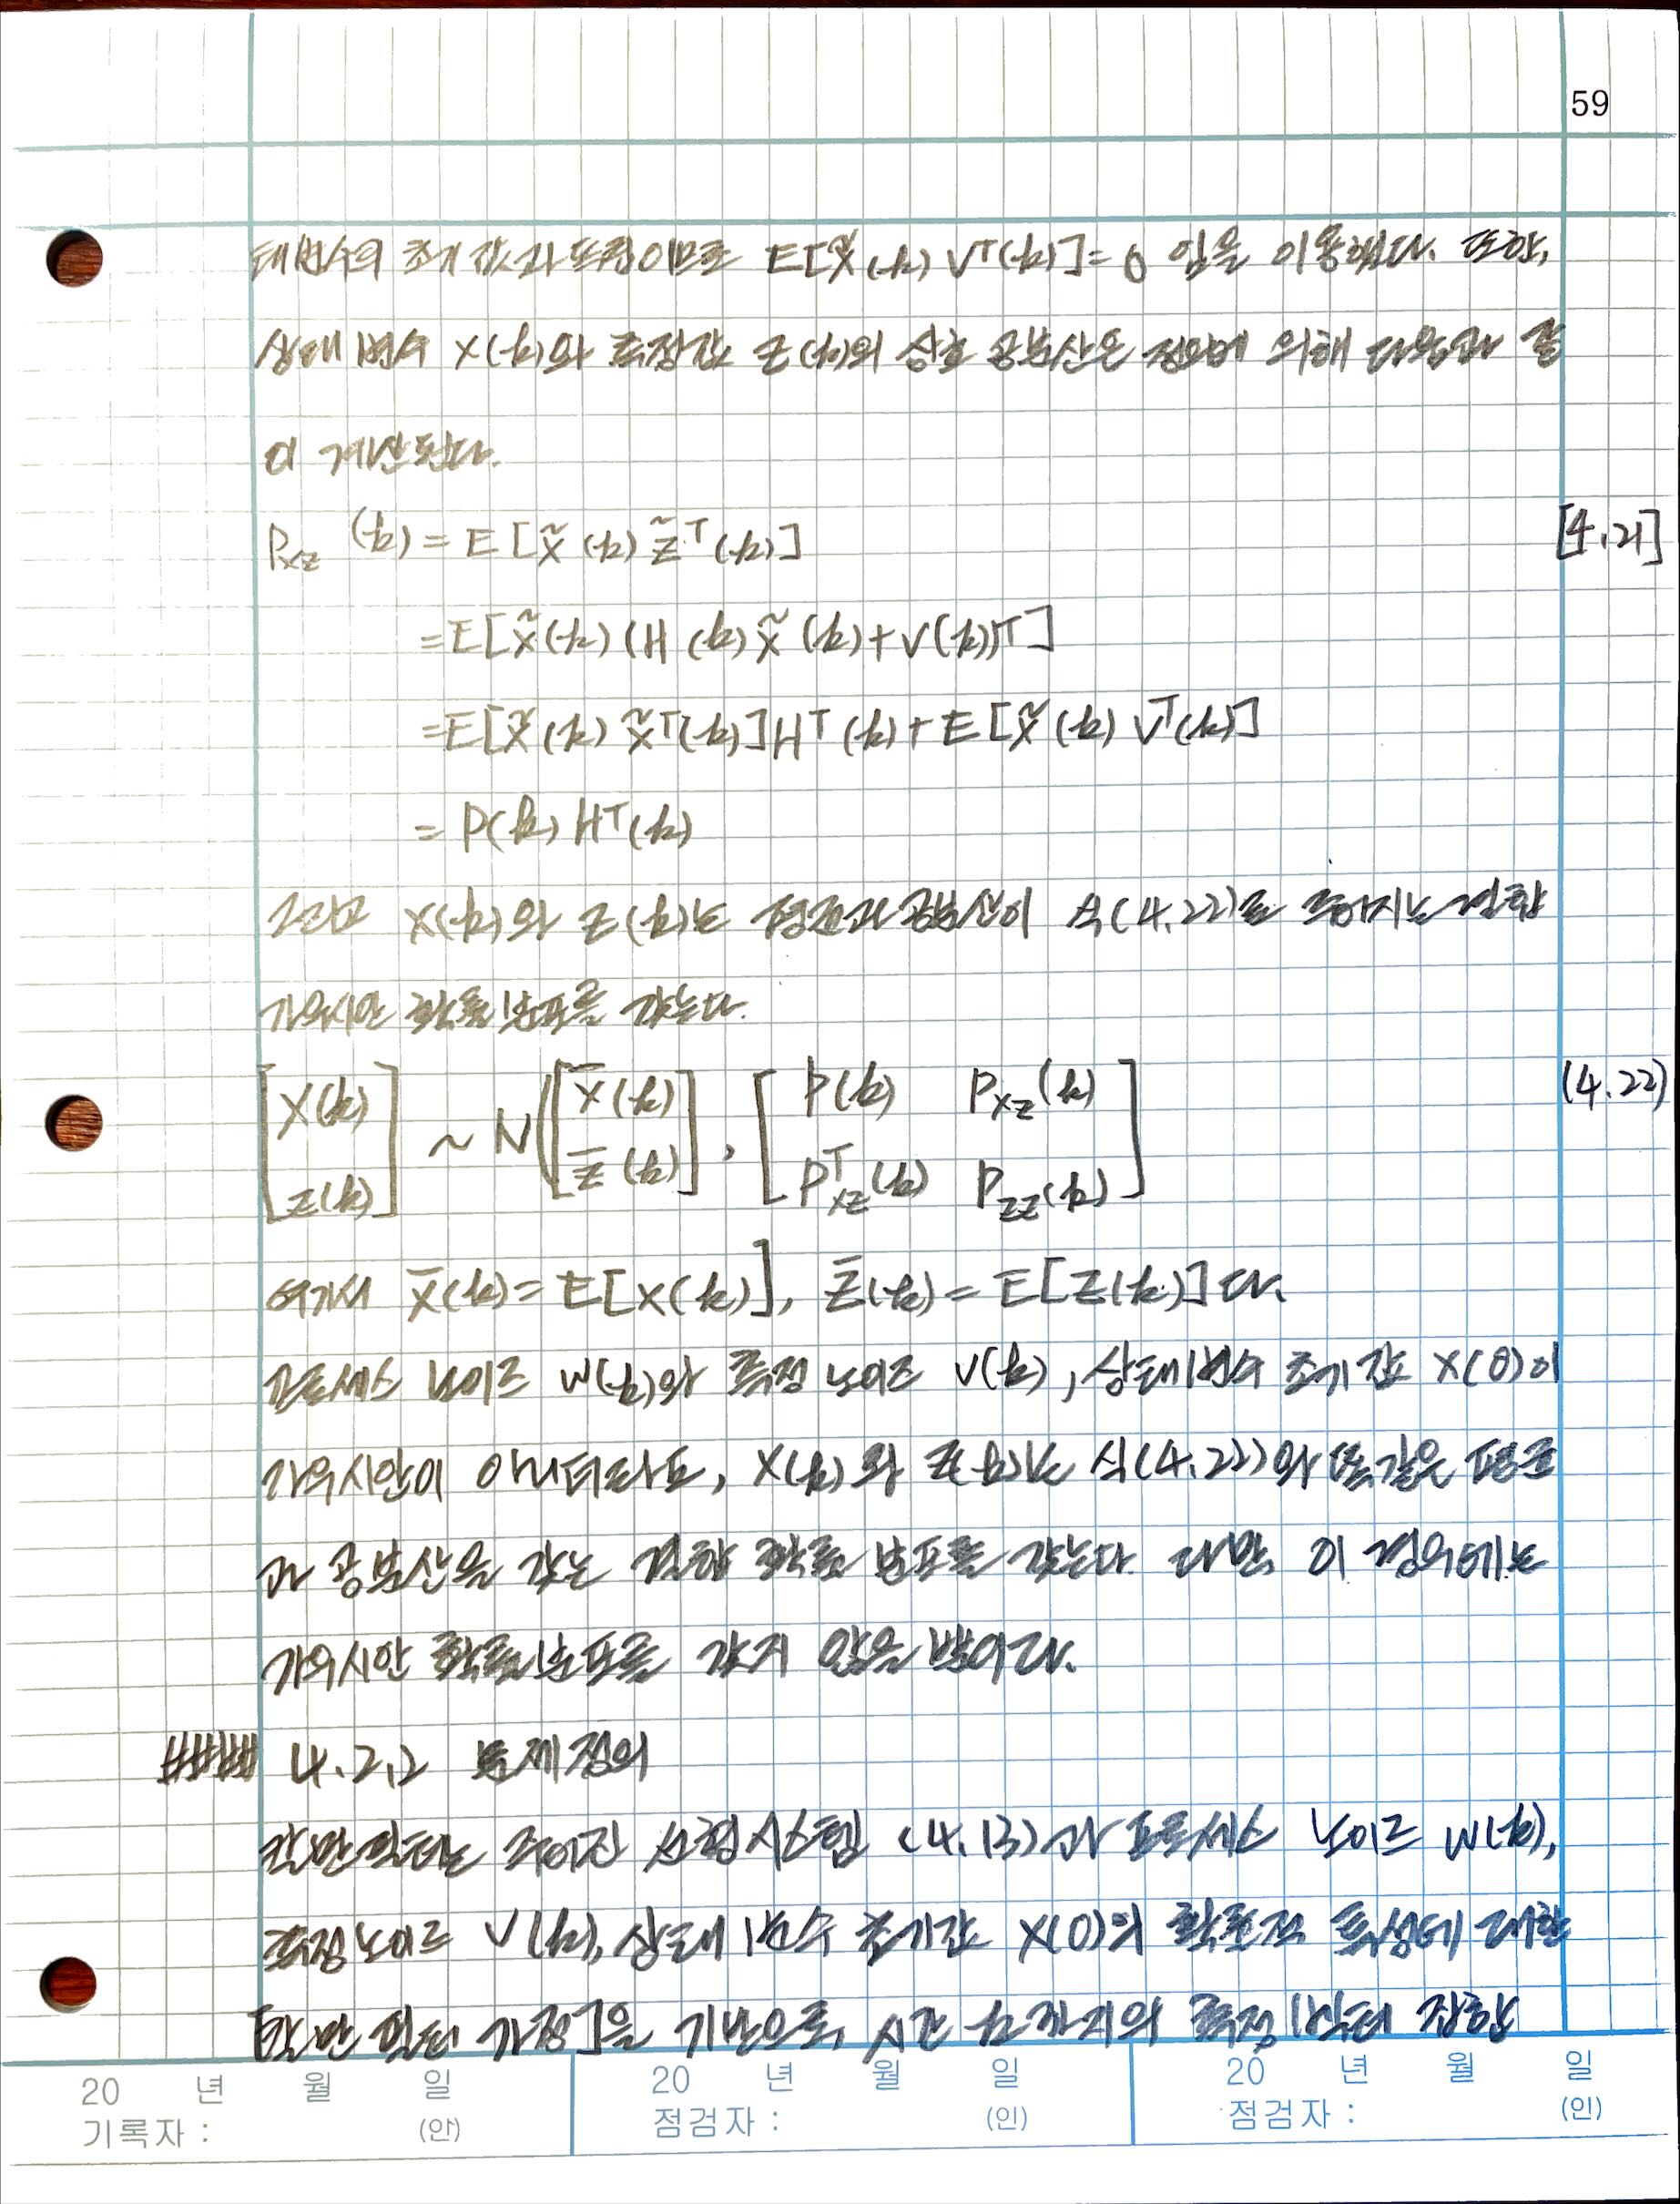 59
태변수의 초기값과 독립이므로 E[x̃(k) vᵀ(k)]=0 임을 이용했다. 또한,
상태변수 x(k)와 측정값 z(k)의 상호 공분산은 정의에 의해 다음과 같
이 계산된다.
P_xz (k) = E[x̃(k) z̃ᵀ(k)] [4.21]
=E[x̃(k)(H(k) x̃(k)+v(k))ᵀ]
=E[x̃(k) x̃ᵀ(k)]Hᵀ(k)+E[x̃(k) vᵀ(k)]
= P(k) Hᵀ(k)
그리고 x(k)와 z(k)는 평균과 공분산이 식(4.22)로 주어지는 결합
가우시안 확률분포를 갖는다.
[x(k) z(k)] ~ N([x̄(k) z̄(k)], [P(k) P_xz(k) Pᵀ_xz(k) P_zz(k)] (4.22)
여기서 x̄(k)=E[x(k)], z̄(k)=E[z(k)]다.
프로세스 노이즈 w(k)와 측정 노이즈 v(k), 상태변수 초기값 x(0)이
가우시안이 아니더라도, x(k)와 z(k)는 식(4.22)와 똑같은 평균
과 공분산을 갖는 결합 확률 분포를 갖는다. 다만, 이 경우에는
가우시안 확률분포를 갖지 않을 뿐이다.
#### 4.2.2 문제정의
칼만필터는 주어진 선형시스템 (4.13)과 프로세스 노이즈 w(k),
측정노이즈 v(k), 상태변수 초기값 x(0)의 확률적 특성에 대한
[칼만 필터 가정]을 기반으로, 시간 k까지의 측정 벡터 집합
20 년 월 일 20 년 월 일 20 년 월 일
기록자 : (인) 점검자 : (인) 점검자 : (인)